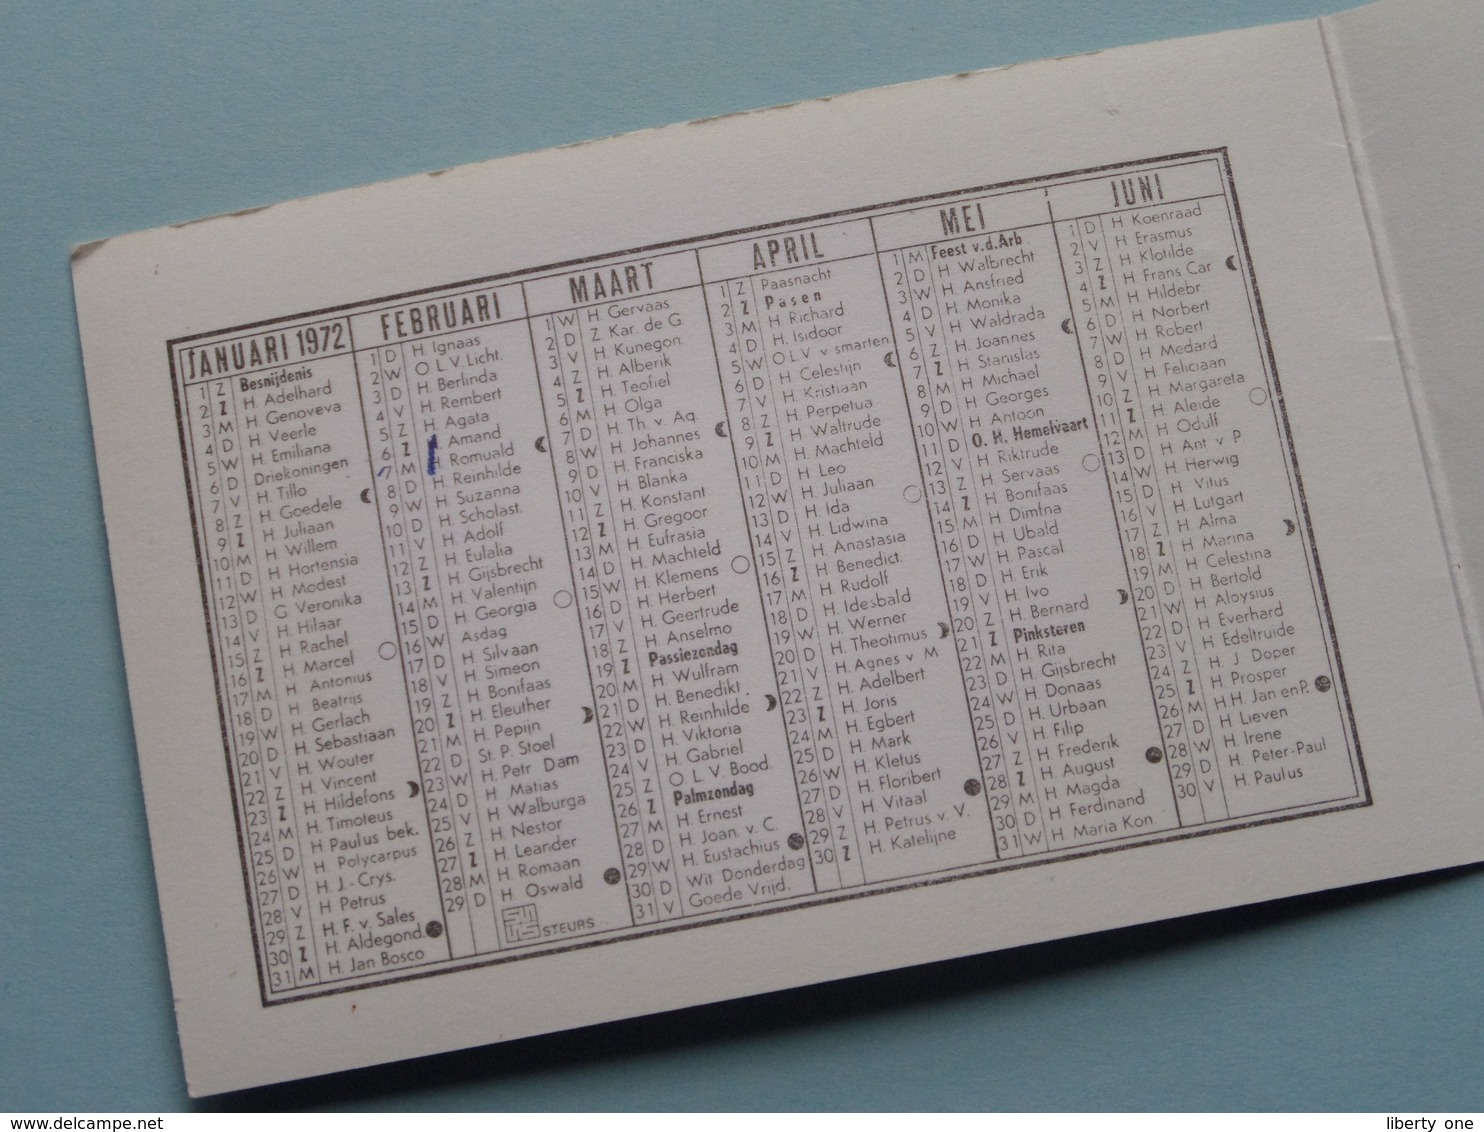 JANUARI 1972
1 Z Besnijdenis
2 Z H. Adelhard
3 M H. Genoveva
4 D H. Veerle
5 W H. Emiliana
6 D Driekoningen
7 V H. Tillo
8 Z H. Goedele
9 Z H. Juliaan
10 M H. Willem
11 D H. Hortensia
12 W H. Modest
13 D G. Veronika
14 V H. Hilaar
15 Z H. Rachel
16 Z H. Marcel
17 M H. Antonius
18 D H. Beatrijs
19 W H. Gerlach
20 D H. Sebastiaan
21 V H. Wouter
22 Z H. Vincent
23 Z H. Hildefons
24 M H. Timoteus
25 D H. Paulus bek.
26 W H. Polycarpus
27 D H. J.- Crys.
28 V H. Petrus
29 Z H. F. v. Sales
30 Z H. Aldegond.
31 M H. Jan Bosco
FEBRUARI
1 D H. Ignaas
2 W O L V Licht.
3 D H. Berlinda
4 V H. Rembert
5 Z H. Agata
6 Z H. Amand
7 M H. Romuald
8 D H. Reinhilde
9 W H. Suzanna
10 D H. Scholast.
11 V H. Adolf
12 Z H. Eulalia
13 Z H. Gijsbrecht
14 M H. Valentijn
15 D H. Georgia
16 W Asdag
17 D H. Silvaan
18 V H. Simeon
19 Z H. Bonifaas
20 Z H. Eleuther
21 M H. Pepijn
22 D St. P. Stoel
23 W H. Petr Dam
24 D H. Matias
25 V H. Walburga
26 Z H. Nestor
27 Z H. Leander
28 M H. Romaan
29 D H. Oswald
STEURS
MAART
1 W H. Gervaas
2 D Z. Kar. de G.
3 V H. Kunegon.
4 Z H. Alberik
5 Z H. Teofiel
6 M H. Olga
7 D H. Th. v. Aq.
8 W H. Johannes
9 D H. Franciska
10 V H. Blanka
11 Z H. Konstant
12 Z H. Gregoor
13 M H. Eufrasia
14 D H. Machteld
15 W H. Klemens
16 D H. Herbert
17 V H. Geertrude
18 Z H. Anselmo
19 Z Passiezondag
20 M H. Wulfram
21 D H. Benedikt.
22 W H. Reinhilde
23 D H. Viktoria
24 V H. Gabriel
25 Z O. L. V. Bood.
26 Z Palmzondag
27 M H. Ernest
28 D H. Joan. v. C.
29 W H. Eustachius
30 D Wit Donderdag
31 V Goede Vrijd.
APRIL
1 Z Paasnacht
2 Z Pasen
3 M H. Richard
4 D H. Isidoor
5 W O L V v smarten
6 D H. Celestijn
7 V H. Kristiaan
8 Z H. Perpetua
9 Z H. Waltrude
10 M H. Machteld
11 D H. Leo
12 W H. Juliaan
13 D H. Ida
14 V H. Lidwina
15 Z H. Anastasia
16 Z H. Benedict.
17 M H. Rudolf
18 D H. Idesbald
19 W H. Werner
20 D H. Theotimus
21 V H. Agnes v. M
22 Z H. Adelbert
23 Z H. Joris
24 M H. Egbert
25 D H. Mark
26 W H. Kletus
27 D H. Floribert
28 V H. Vitaal
29 Z H. Petrus v. V.
30 Z H. Katelijne
MEI
1 M Feest v.d.Arb.
2 D H. Walbrecht
3 W H. Ansfried
4 D H. Monika
5 V H. Waldrada
6 Z H. Joannes
7 Z H. Stanislas
8 M H. Michael
9 D H. Georges
10 W H. Antoon
11 D O. H. Hemelvaart
12 V H. Riktrude
13 Z H. Servaas
14 Z H. Bonifaas
15 M H. Dimfna
16 D H. Ubald
17 W H. Pascal
18 D H. Erik
19 V H. Ivo
20 Z H. Bernard
21 Z Pinksteren
22 M H. Rita
23 D H. Gijsbrecht
24 W H. Donaas
25 D H. Urbaan
26 V H. Filip
27 Z H. Frederik
28 Z H. August
29 M H. Magda
30 D H. Ferdinand
31 W H. Maria Kon
JUNI
1 D H Koenraad
2 V H Erasmus
3 Z H. Klotilde
4 Z H Frans Car.
5 M H Hildebr
6 D H. Norbert
7 W H Robert
8 D H. Medard
9 V H. Feliciaan
10 Z H. Margareta
11 Z H. Aleide
12 M H Odulf
13 D H. Ant v P
14 W H. Herwig
15 D H. Vitus
16 V H. Lutgart
17 Z H. Alma
18 Z H. Marina
19 M H. Celestina
20 D H. Bertold
21 W H. Aloysius
22 D H. Everhard
23 V H. Edeltruide
24 Z H. J. Doper
25 Z H. Prosper
26 M H.H. Jan en P.
27 D H. Lieven
28 W H. Irene
29 D H. Peter-Paul
30 V H. Paulus
liberty one